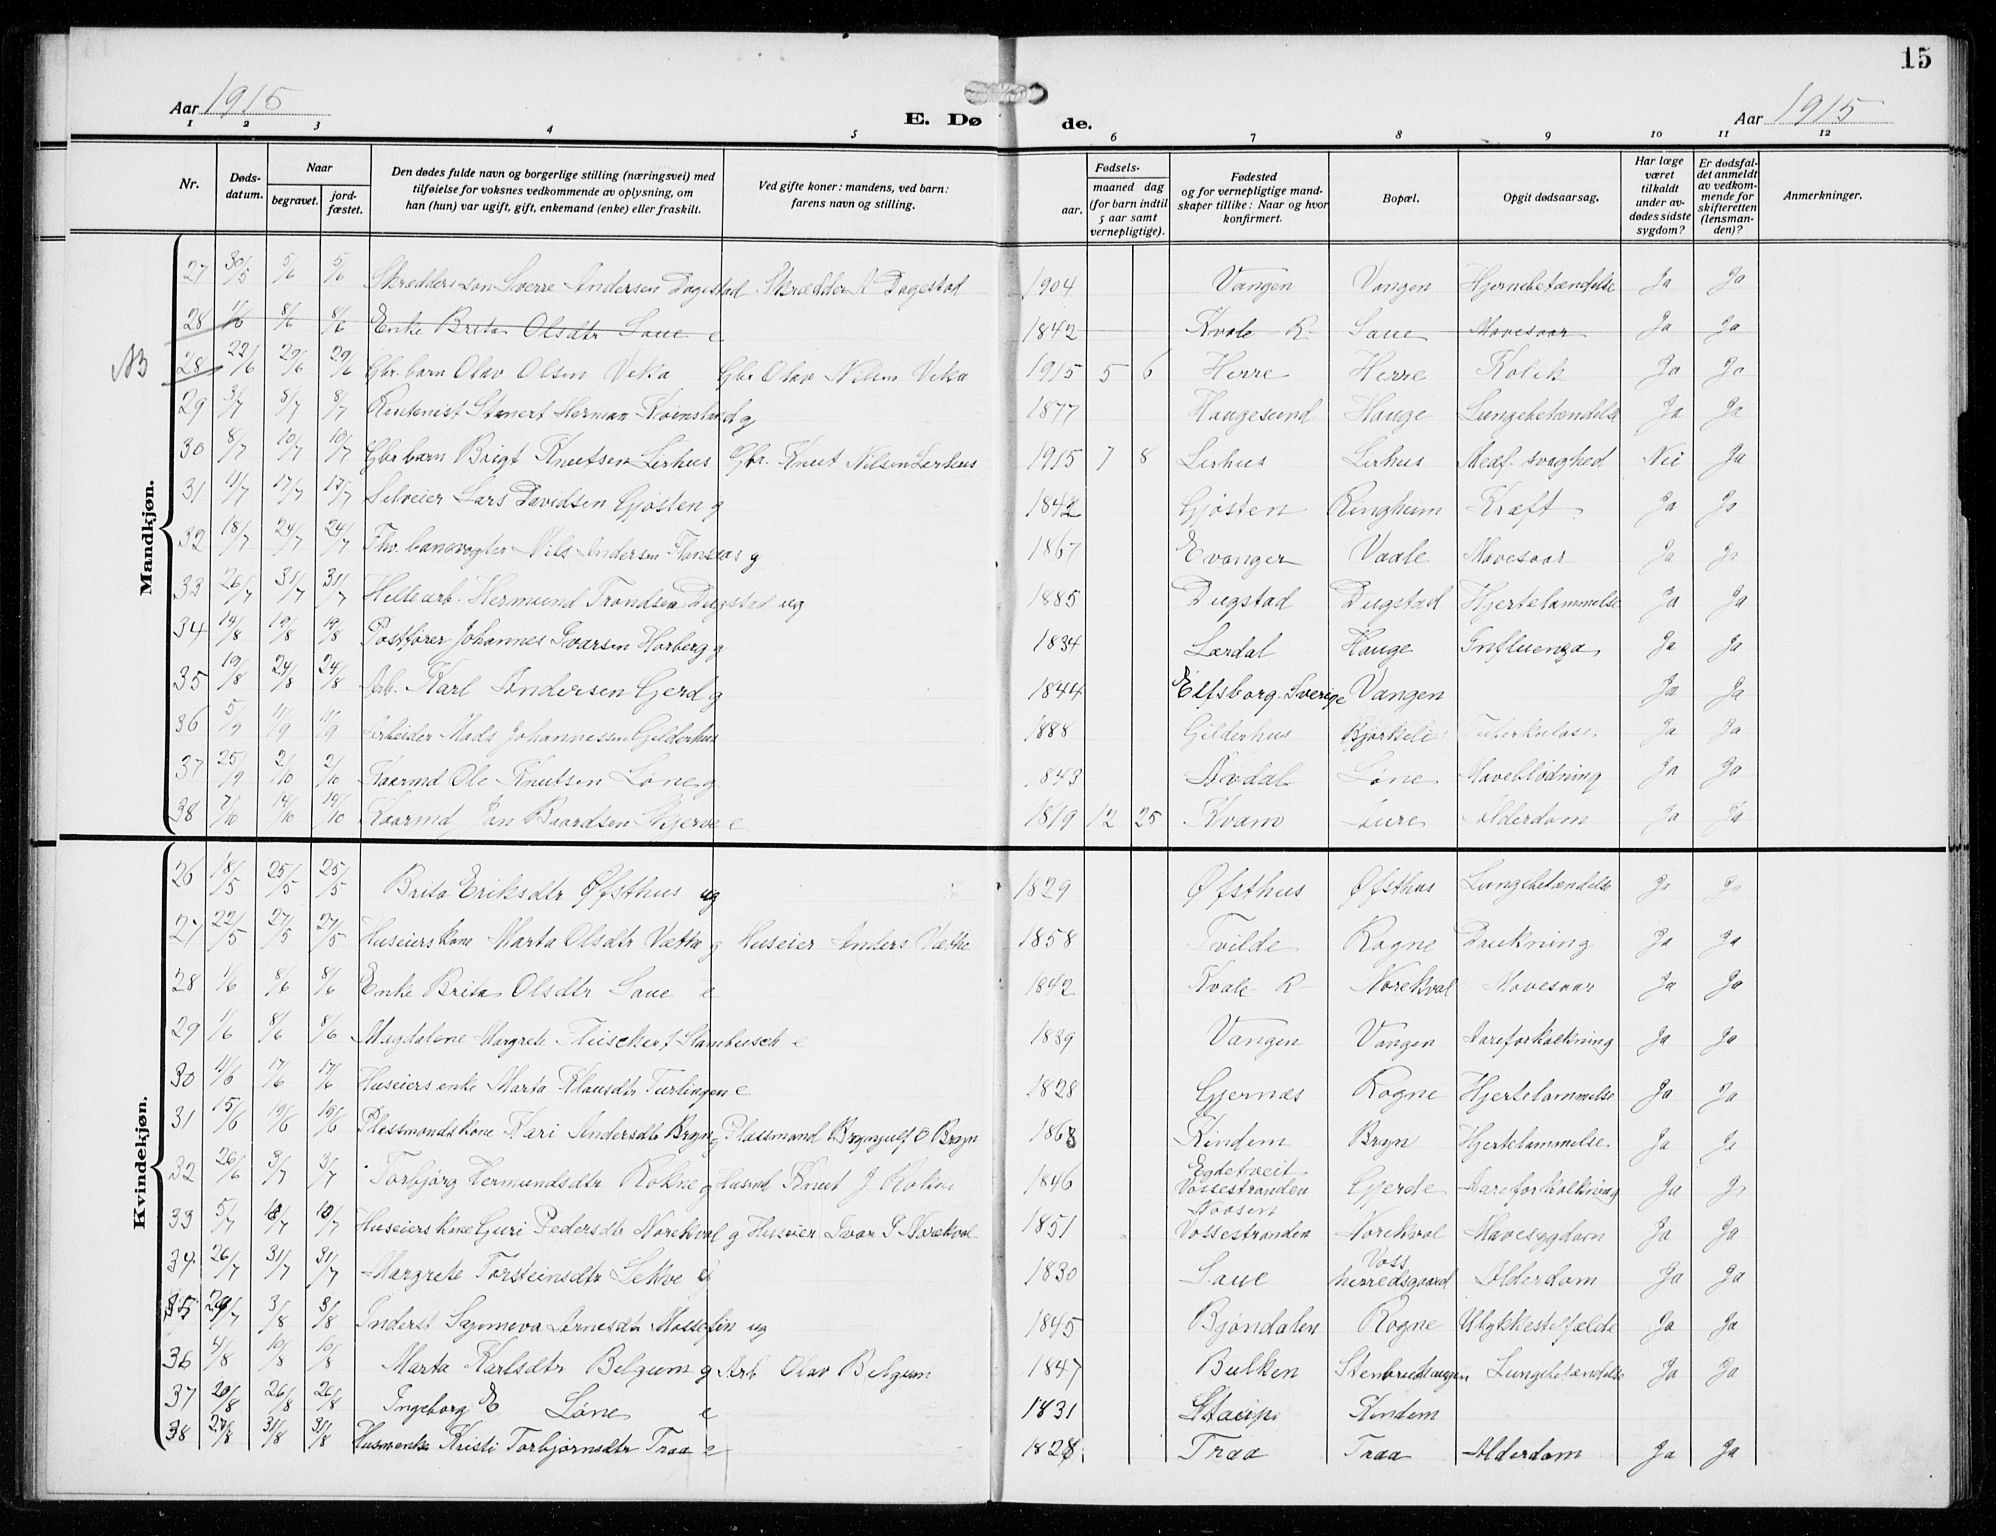 15
Aar 1915
E. Dø
de.
Aar 1915
1 2 3 4 5 6 7 8 9 10 11 12
Nr.
Døds-datum.
Naar
begravet.
jord-fæstet.
Den dødes fulde navn og borgerlige stilling (næringsvei) med
tilføielse for voksnes vedkommende av oplysning, om
han (hun) var ugift, gift, enkemand (enke) eller fraskilt.
Ved gifte koner: mandens, ved barn:
farens navn og stilling.
Fødsels-
aar.
maaned dag
(for barn indtil
5 aar samt
vernepligtige).
Fødested
og for vernepligtige mand-
skaper tillike: Naar og hvor
konfirmert.
Bopæl.
Opgit dødsaarsag.
Har læge
været
tilkaldt
under av-
dødes sidste
sygdom?
Er dødsfal-
det anmeldt
av vedkom-
mende for
skifteretten
(lensman-
den)?
Anmerkninger.
Mandkjøn.
27 30/5 5/6 5/6 Skreddersøn Sverre Andersen Dagestad Skrædder A Dagestad 1904 Vangen Vangen Hjernebetændelse Ja Ja
28 1/6 8/6 8/6 Enke Brita Olsdtr Saue e 1842 Kvale R Saue Mavesaar Ja Ja
NB 28 22/6 29/6 29/6 Gbr. barn Olav Olsen Veka Gbr Olav Nilsen Veka 1915 5 6 Herre Herre Kolik Ja Ja
29 3/7 8/7 8/7 Rentenist Herman g 1877 Haugesund Hauge Lungebetændelse Ja Ja
30 8/7 10/7 10/7 Gbr barn Brigt Knutsen Lirhus Gbr. Knut Nilsen Lirhus 1915 7 8 Lirhus Lirhus Medf. svaghed Nei Ja
31 11/7 17/7 17/7 Selveier Lars Davidsen Gjøsten g 1842 Gjøsten Ringheim Kræft Ja Ja
32 18/7 24/7 24/7 Fhv. banevogter Nils Andersen g 1867 Evanger Vaale Mavesaar Ja Ja
33 26/7 31/7 31/7 Hermund Trondsen Dugstad ug 1885 Dugstad Dugstad Hjertelammelse Ja Ja
34 14/8 19/8 19/8 Postfører Johannes Ivarsen Horberg g 1834 Lærdal Hauge Influenza Ja Ja
35 19/8 24/8 24/8 Arb. Karl Andersen Gjerd g 1844 Elfsborg. Sverige Vangen Ja Ja
36 5/9 11/9 11/9 Arbeider Mads Johannessen Gilderhus 1888 Gilderhus Bjørkeli Tuberkulose Ja Ja
37 25/9 2/10 2/10 Kaarmd Ole Knutsen Lône g 1843 Løne Maveblødning Ja Ja
38 7/10 14/10 14/10 Kaarmd Jan Baardsen Skjerve e 1819 12 25 Kvam Lure Alderdom Ja Ja
Kvindekjøn.
26 18/5 25/5 25/5 Brita Eriksdtr Øfsthus ug 1829 Øfsthus Øfsthus Lungebetændelse Ja Ja
27 22/5 27/5 27/5 Huseierskone Marta Olsdtr Væthe g Huseier Anders Væthe 1858 Tvilde Rogne Drukning Ja Ja
28 1/6 8/6 8/6 Enke Brita Olsdtr Saue e 1842 Kvale R Norekval Mavesaar Ja Ja
29 1/6 8/6 8/6 Magdalene Margrete Fleischer f. Stambusch e 1839 Vangen Vangen Aareforkalkning Ja Ja
30 11/6 17/6 17/6 Huseiers enke Marta Klausdtr Turlingen e 1828 Gjernæs Rogne Hjertelammelse Ja Ja
31 15/6 19/6 19/6 Plassmandskone Kari Andersdtr Bryn g Plassmand Brynjulf O Bryn 1868 Kindem Bryn Hjertelammelse Ja Ja
32 26/6 3/7 3/7 Torbjørg Hermundsdtr Rokne g Husmd Knut J Rokne 1846 Egdetveit Vossestranden Gjerde Aareforkalkning Ja Ja
33 5/7 10/7 10/7 Huseierskone Guri Pedersdtr Norekval g Huseier Ivar P Norekval 1851 Vossestranden Norekval Mavesygdom Ja Ja
34 26/7 31/7 31/7 Margrete Torsteinsdtr Lekve g 1830 Saue Voss herredsgaard Alderdom Ja Ja
35 29/7 3/8 3/8 Inderst Synneva Arnesdtr Mossefin ug 1845 Bjøndalen Rogne Ulykkestilfælde Ja Ja
36 4/8 10/8 10/8 Marta Karlsdtr Belgum g Arb Olav Belgum 1847 Bulken Lungebetændelse Ja Ja
37 20/8 26/8 26/8 Ingeborg E Løne e 1831 Staup Kindem
38 27/8 31/8 31/8 Husmenke Kristi Torbjørnsdtr Traa e 1828 Traa Traa Alderdom Ja Ja